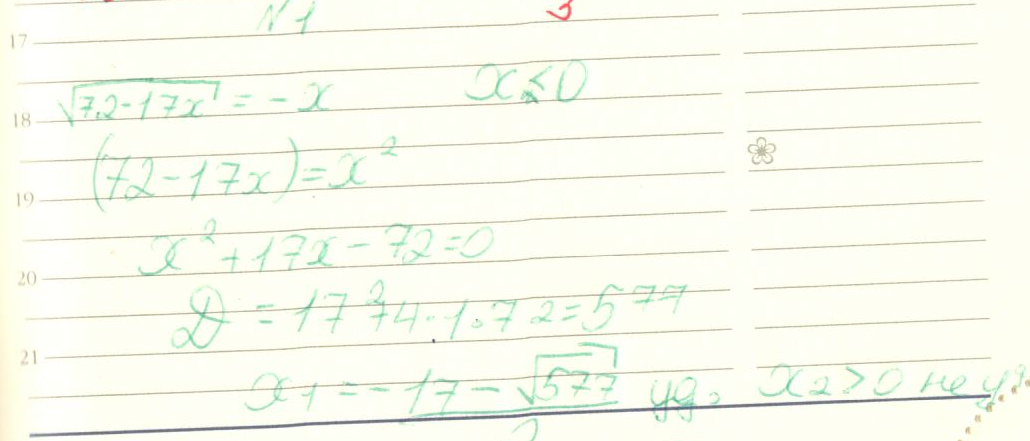 N 1 3
17
√72-17x = -x x≤0
18
(72-17x)=x²
19
x²+17x-72=0
20
D = 17²+4·1·72=577
21
x1 = -17-√577 уд. x2>0 не уд.
2